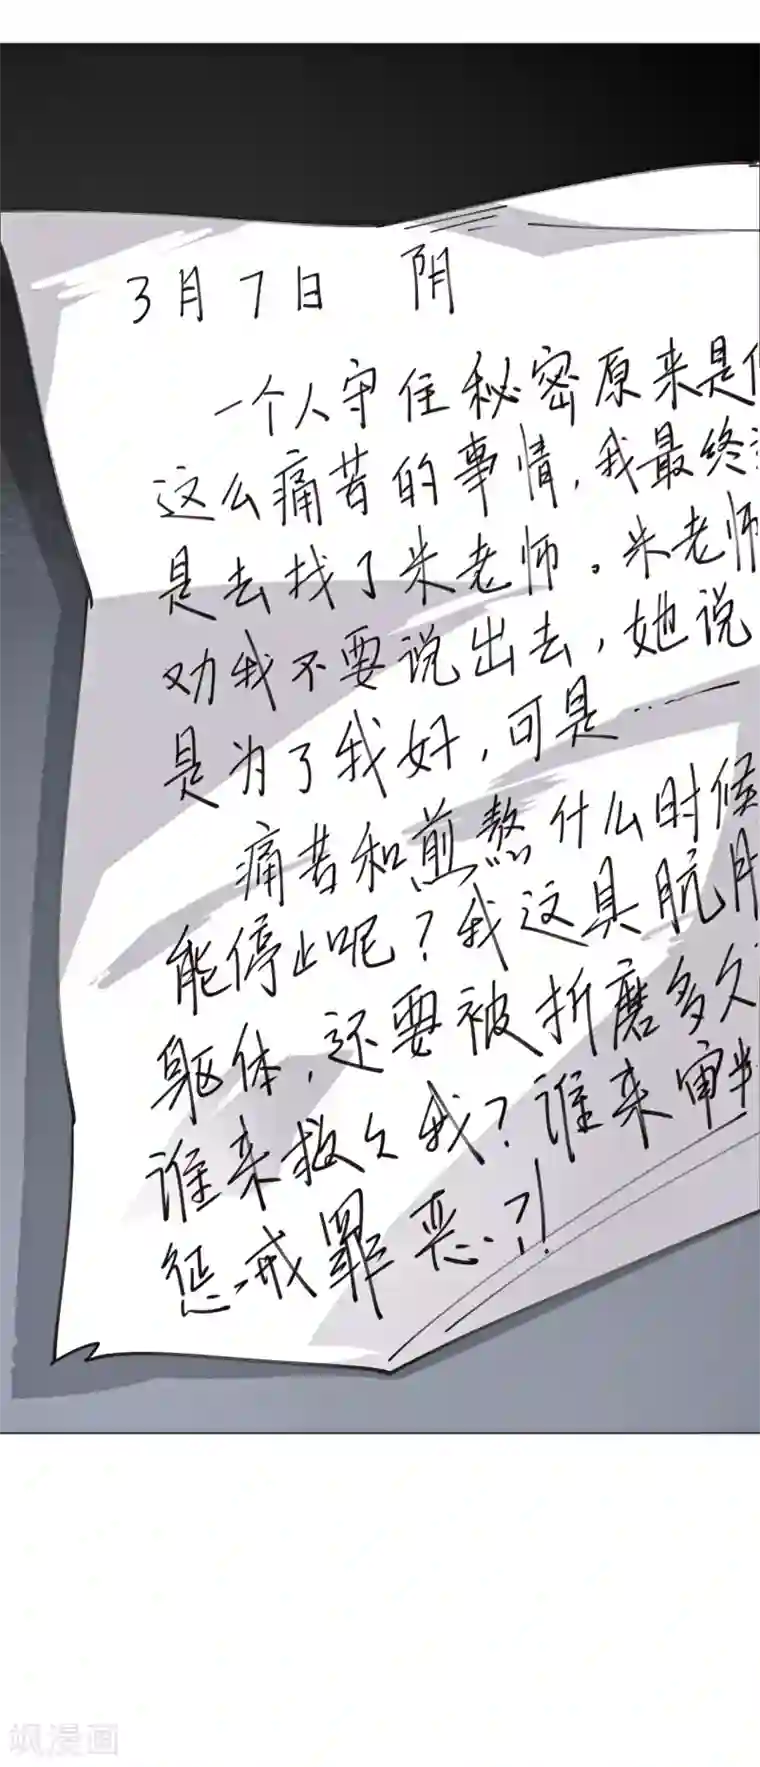 3月7日 阴
一个人守住秘密原来是
这么痛苦的事情,我最终
是去找了米老师。米老师
劝我不要说出去,她说
是为了我好,可是……
痛苦和煎熬什么时候
能停止呢?我这具肮
躯体,还要被折磨多久
谁来救久我?谁来审判
惩戒罪恶?!
飒漫画